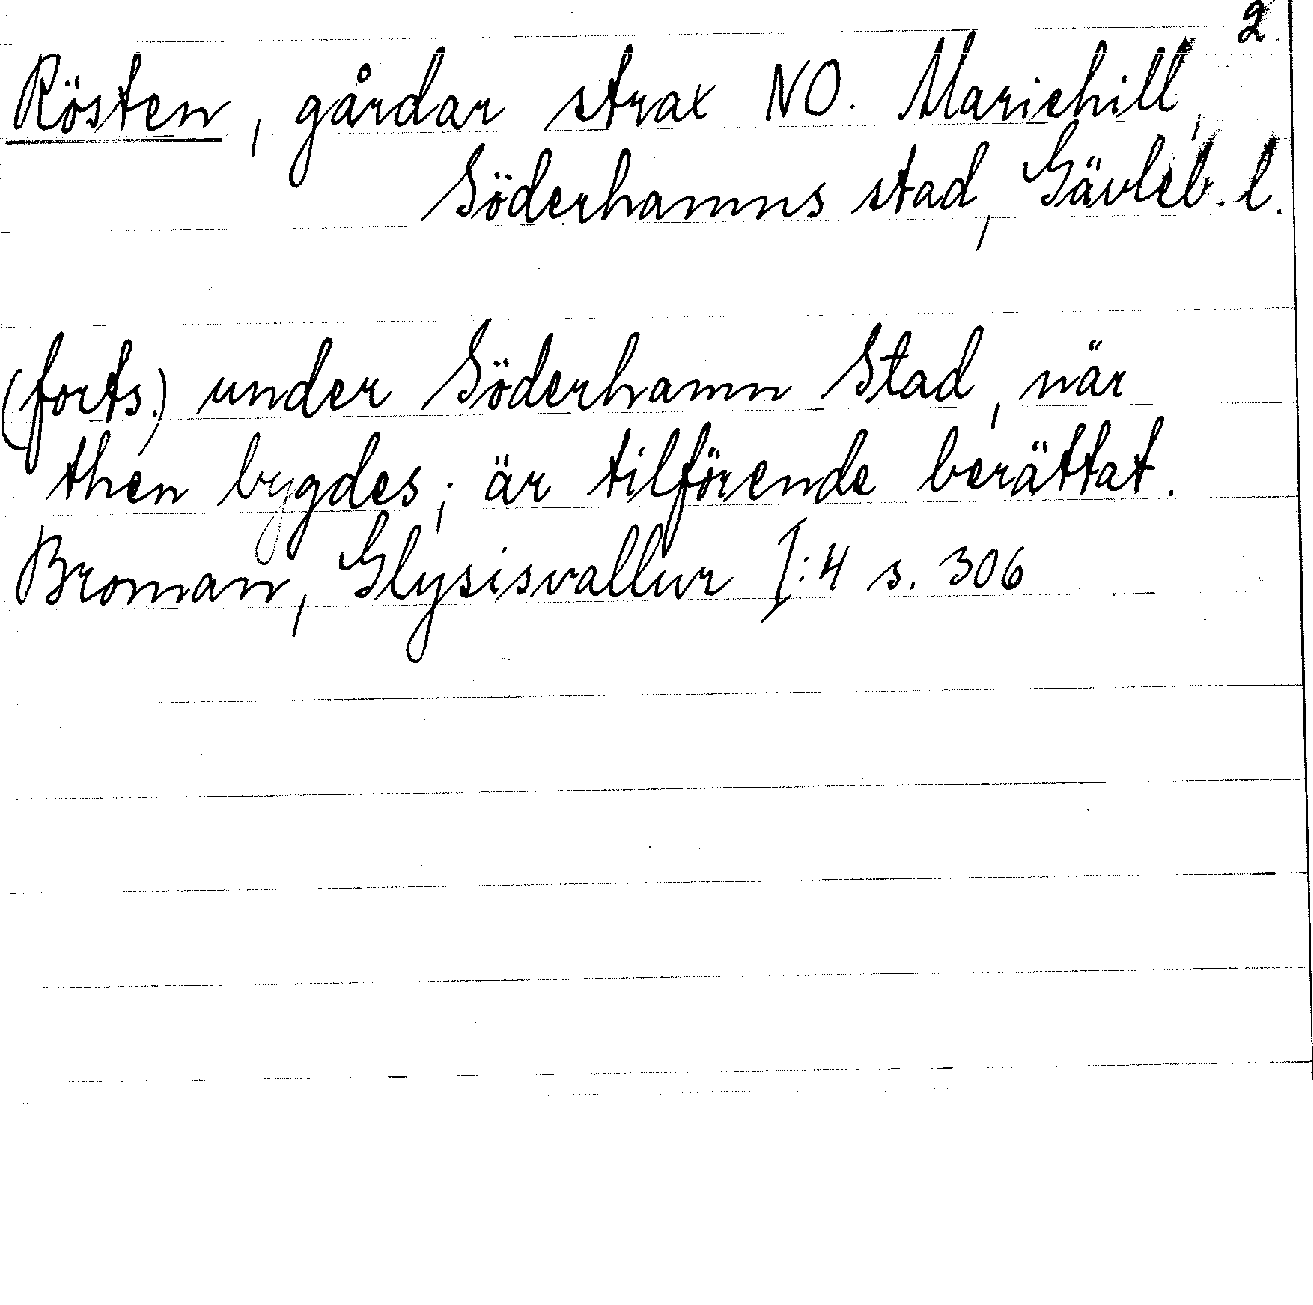 2.
Rösten, gårdar strax NO. Mariehill,
Söderhamns stad, Gävleb. l.
(forts.) under Söderhamn Stad, när
then bygdes; är tilförende berättat.
Broman, Glysisvallur I:4 s. 306